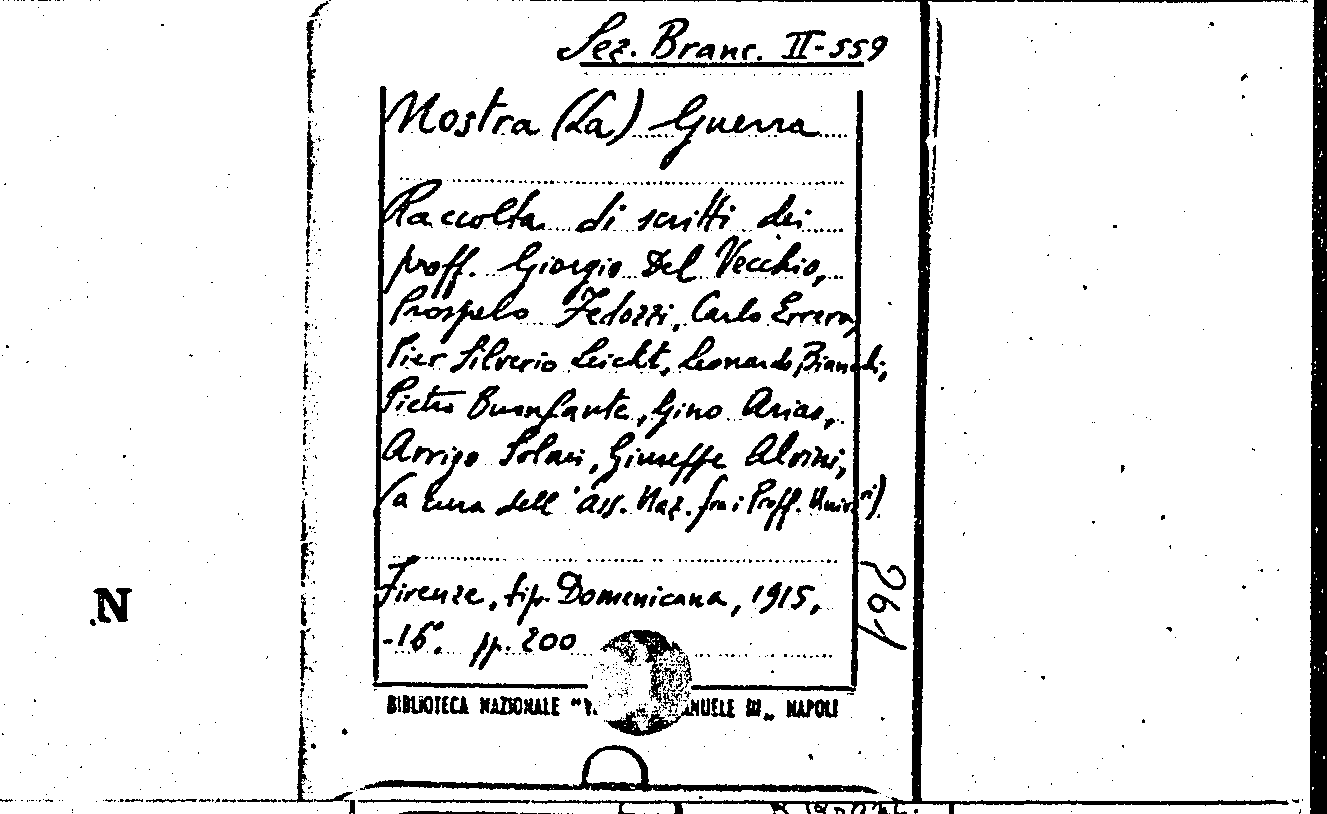 Sez. Branc. II-559
Nostra (La) Guerra
Raccolta di scritti dei
proff. Giorgio Del Vecchio,
Prospero Fedozzi, Carlo Errera,
Pier Silverio Leicht, Leonardo Bianchi,
Pietro Buonfante, Gino Arias,
Arrigo Solmi, Giuseppe Alvini,
(a cura dell'Ass. Naz. fra i Proff. Univ.ri)
Firenze, tip. Domenicana, 1915,
-16°. pp. 200
261
N
BIBLIOTECA NAZIONALE "V. ANUELE III„ NAPOLI